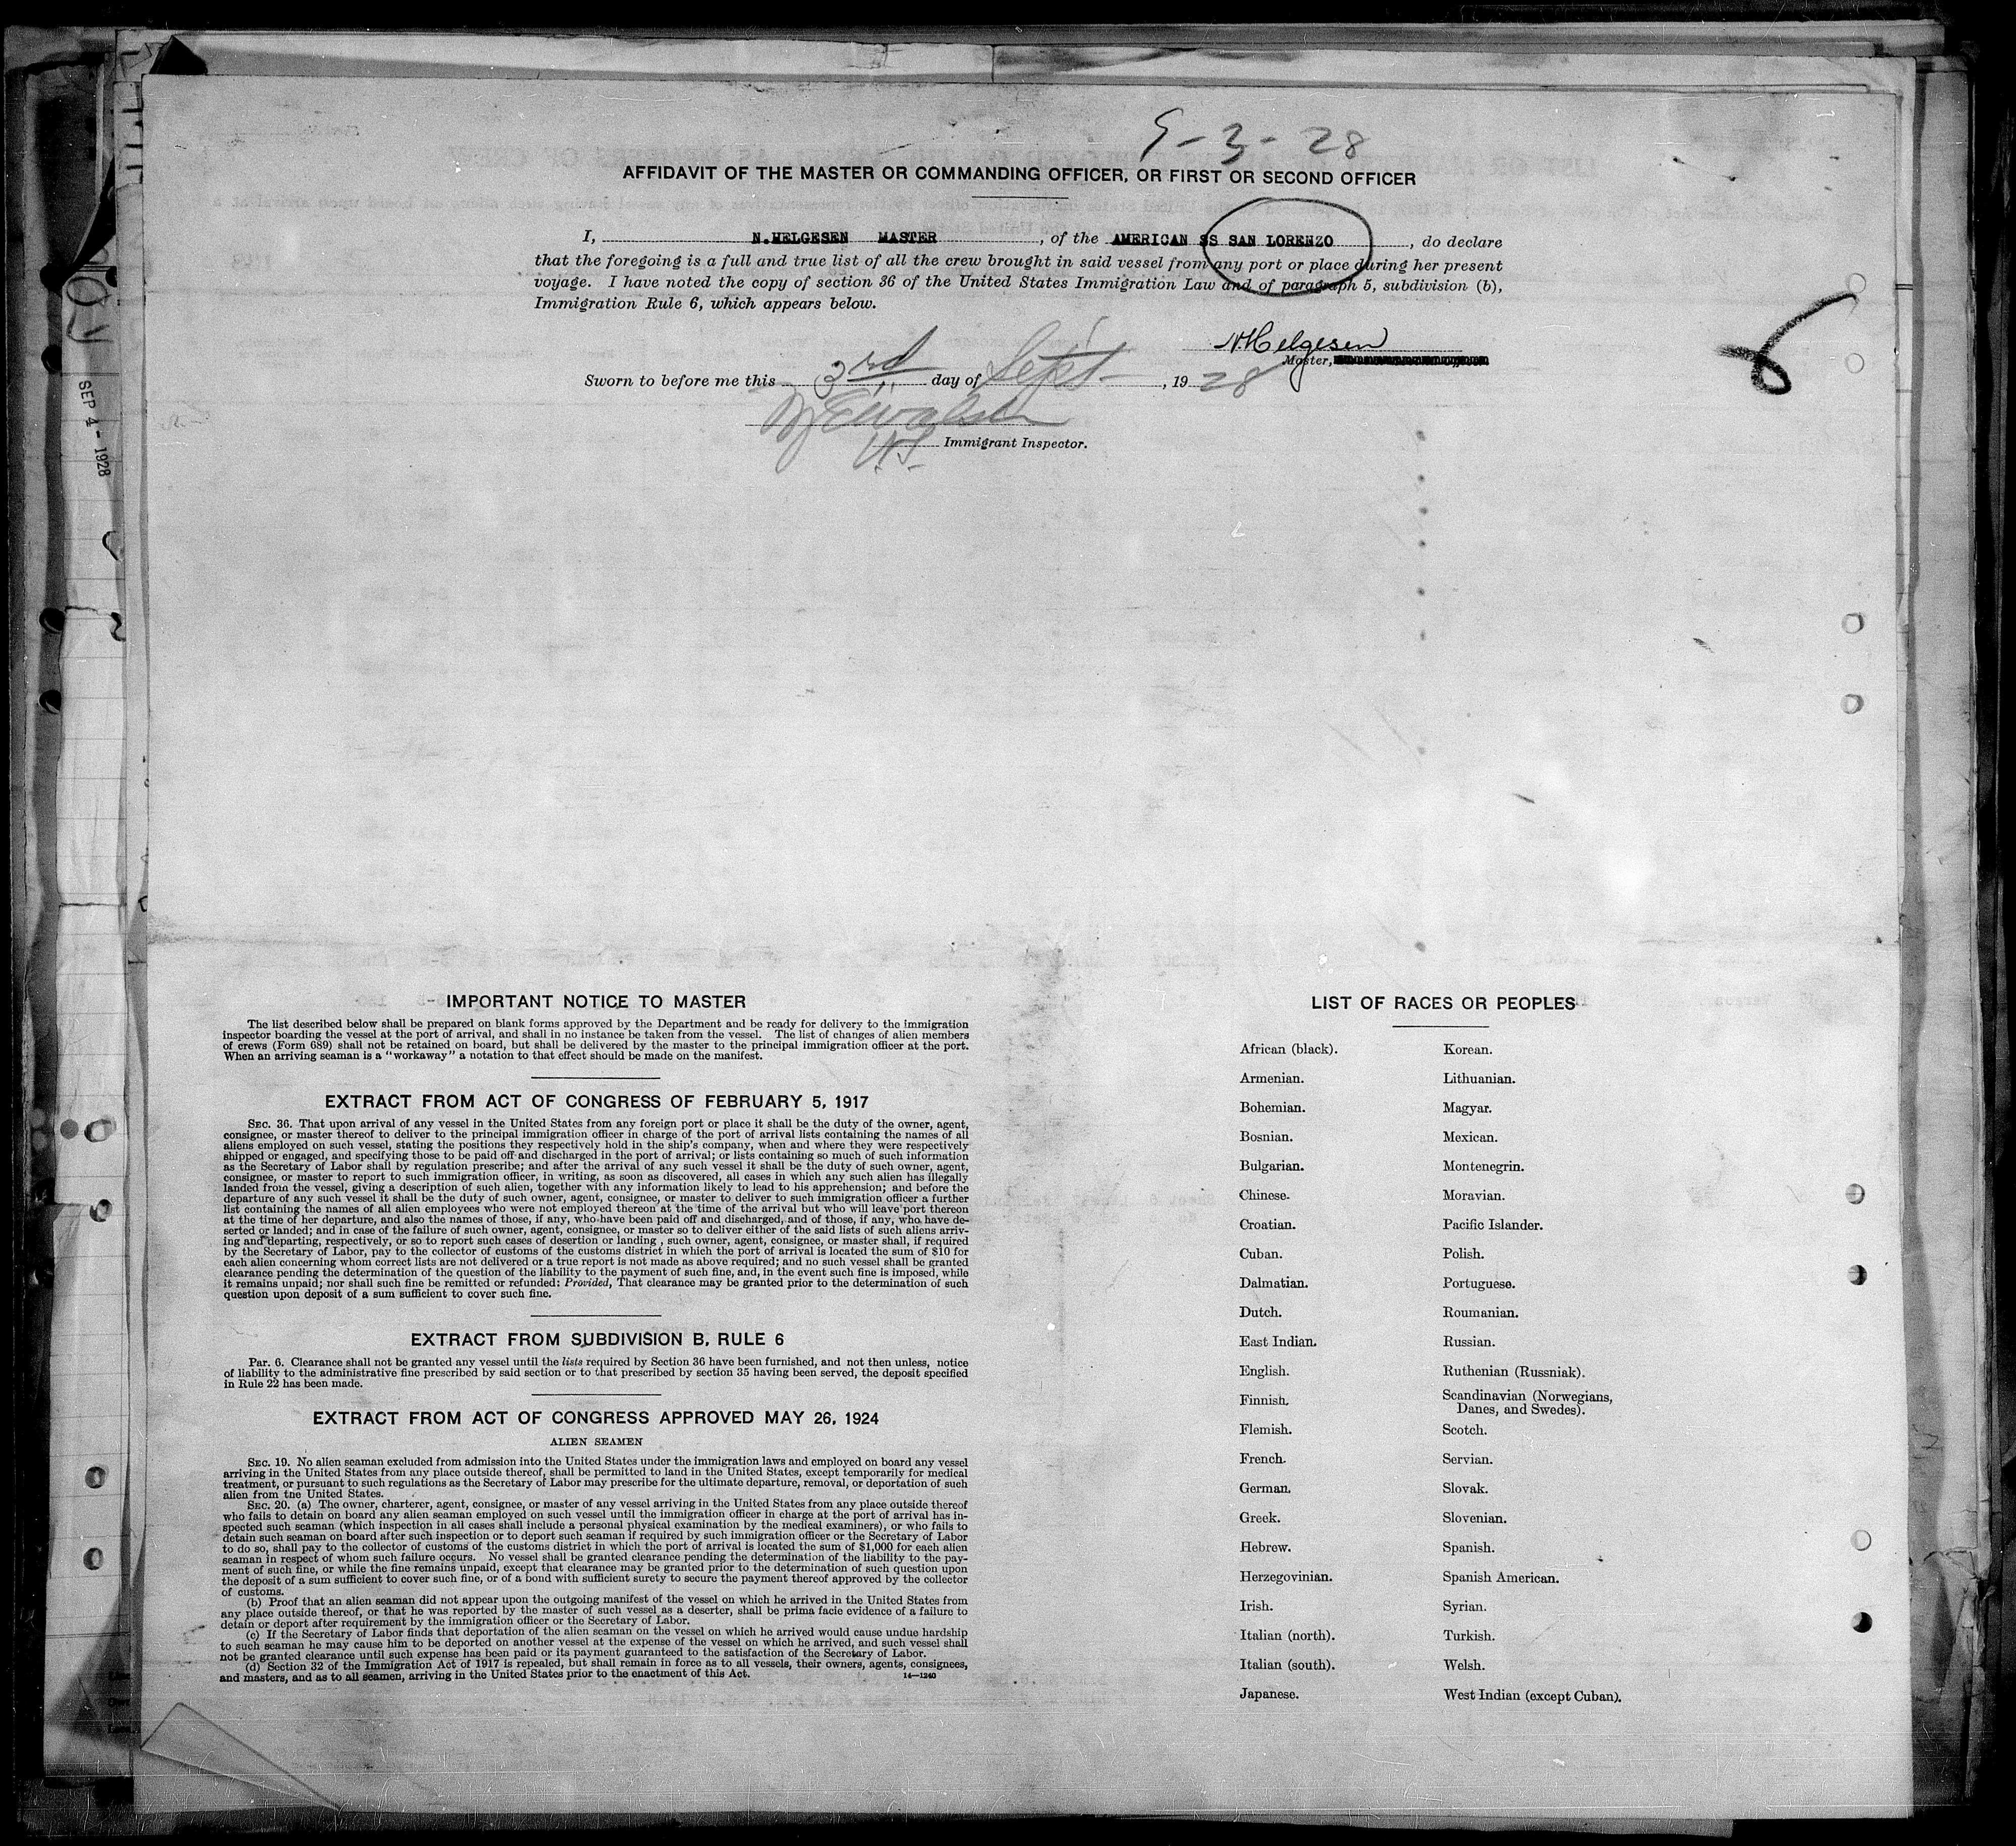 9-3-28
AFFIDAVIT OF THE MASTER OR COMMANDING OFFICER, OR FIRST OR SECOND OFFICER
I, N.HELGESEN MASTER, of the AMERICAN SS SAN LORENZO, do declare
that the foregoing is a full and true list of all the crew brought in said vessel from any port or place during her present
voyage. I have noted the copy of section 36 of the United States Immigration Law and of paragraph 5, subdivision (b),
Immigration Rule 6, which appears below.
N.Helgesen
Master,
Sworn to before me this 3rd day of Sept, 1928
U.S. Immigrant Inspector.
6
SEP 4 - 1928
IMPORTANT NOTICE TO MASTER
The list described below shall be prepared on blank forms approved by the Department and be ready for delivery to the immigration
inspector boarding the vessel at the port of arrival, and shall in no instance be taken from the vessel. The list of changes of alien members
of crews (Form 689) shall not be retained on board, but shall be delivered by the master to the principal immigration officer at the port.
When an arriving seaman is a "workaway" a notation to that effect should be made on the manifest.
EXTRACT FROM ACT OF CONGRESS OF FEBRUARY 5, 1917
SEC. 36. That upon arrival of any vessel in the United States from any foreign port or place it shall be the duty of the owner, agent,
consignee, or master thereof to deliver to the principal immigration officer in charge of the port of arrival lists containing the names of all
aliens employed on such vessel, stating the positions they respectively hold in the ship's company, when and where they were respectively
shipped or engaged, and specifying those to be paid off and discharged in the port of arrival; or lists containing so much of such information
as the Secretary of Labor shall by regulation prescribe; and after the arrival of any such vessel it shall be the duty of such owner, agent,
consignee, or master to report to such immigration officer, in writing, as soon as discovered, all cases in which any such alien has illegally
landed from the vessel, giving a description of such alien, together with any information likely to lead to his apprehension; and before the
departure of any such vessel it shall be the duty of such owner, agent, consignee, or master to deliver to such immigration officer a further
list containing the names of all alien employees who were not employed thereon at the time of the arrival but who will leave port thereon
at the time of her departure, and also the names of those, if any, who have been paid off and discharged, and of those, if any, who have de-
serted or landed; and in case of the failure of such owner, agent, consignee, or master so to deliver either of the said lists of such aliens arriv-
ing and departing, respectively, or so to report such cases of desertion or landing, such owner, agent, consignee, or master shall, if required
by the Secretary of Labor, pay to the collector of customs of the customs district in which the port of arrival is located the sum of $10 for
each alien concerning whom correct lists are not delivered or a true report is not made as above required; and no such vessel shall be granted
clearance pending the determination of the question of the liability to the payment of such fine, and, in the event such fine is imposed, while
it remains unpaid; nor shall such fine be remitted or refunded: Provided, That clearance may be granted prior to the determination of such
question upon deposit of a sum sufficient to cover such fine.
EXTRACT FROM SUBDIVISION B, RULE 6
Par. 6. Clearance shall not be granted any vessel until the lists required by Section 36 have been furnished, and not then unless, notice
of liability to the administrative fine prescribed by said section or to that prescribed by section 35 having been served, the deposit specified
in Rule 22 has been made.
EXTRACT FROM ACT OF CONGRESS APPROVED MAY 26, 1924
ALIEN SEAMEN
SEC. 19. No alien seaman excluded from admission into the United States under the immigration laws and employed on board any vessel
arriving in the United States from any place outside thereof, shall be permitted to land in the United States, except temporarily for medical
treatment, or pursuant to such regulations as the Secretary of Labor may prescribe for the ultimate departure, removal, or deportation of such
alien from the United States.
SEC. 20. (a) The owner, charterer, agent, consignee, or master of any vessel arriving in the United States from any place outside thereof
who fails to detain on board any alien seaman employed on such vessel until the immigration officer in charge at the port of arrival has in-
spected such seaman (which inspection in all cases shall include a personal physical examination by the medical examiners), or who fails to
detain such seaman on board after such inspection or to deport such seaman if required by such immigration officer or the Secretary of Labor
to do so, shall pay to the collector of customs of the customs district in which the port of arrival is located the sum of $1,000 for each alien
seaman in respect of whom such failure occurs. No vessel shall be granted clearance pending the determination of the liability to the pay-
ment of such fine, or while the fine remains unpaid, except that clearance may be granted prior to the determination of such question upon
the deposit of a sum sufficient to cover such fine, or of a bond with sufficient surety to secure the payment thereof approved by the collector
of customs.
(b) Proof that an alien seaman did not appear upon the outgoing manifest of the vessel on which he arrived in the United States from
any place outside thereof, or that he was reported by the master of such vessel as a deserter, shall be prima facie evidence of a failure to
detain or deport after requirement by the immigration officer or the Secretary of Labor.
(c) If the Secretary of Labor finds that deportation of the alien seaman on the vessel on which he arrived would cause undue hardship
to such seaman he may cause him to be deported on another vessel at the expense of the vessel on which he arrived, and such vessel shall
not be granted clearance until such expense has been paid or its payment guaranteed to the satisfaction of the Secretary of Labor.
(d) Section 32 of the Immigration Act of 1917 is repealed, but shall remain in force as to all vessels, their owners, agents, consignees,
and masters, and as to all seamen, arriving in the United States prior to the enactment of this Act.
14—1240
LIST OF RACES OR PEOPLES
African (black). Korean.
Armenian. Lithuanian.
Bohemian. Magyar.
Bosnian. Mexican.
Bulgarian. Montenegrin.
Chinese. Moravian.
Croatian. Pacific Islander.
Cuban. Polish.
Dalmatian. Portuguese.
Dutch. Roumanian.
East Indian. Russian.
English. Ruthenian (Russniak).
Finnish. Scandinavian (Norwegians,
Danes, and Swedes).
Flemish. Scotch.
French. Servian.
German. Slovak.
Greek. Slovenian.
Hebrew. Spanish.
Herzegovinian. Spanish American.
Irish. Syrian.
Italian (north). Turkish.
Italian (south). Welsh.
Japanese. West Indian (except Cuban).